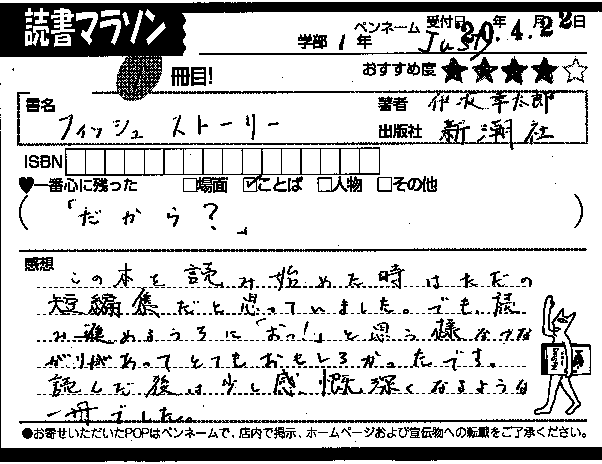 読書マラソン
学部 1年
ペンネーム Just
受付日 20.年4.月22日
冊目!
おすすめ度 ★★★★☆
書名
フィッシュ ストーリー
著者 伊坂幸太郎
出版社 新潮社
ISBN
♥一番心に残った □場面 ☑ことば □人物 □その他
(「だから?」)
感想
この本を読み始めた時はただの
短編集だと思っていました。でも、読
み進めるうちに「おっ!」と思う様なつな
がりがあってとてもおもしろかったです。
読んだ後は少し感慨深くなるような
一冊でした。
●お寄せいただいたPOPはペンネームで、店内で掲示、ホームページおよび宣伝物への転載をご了承ください。